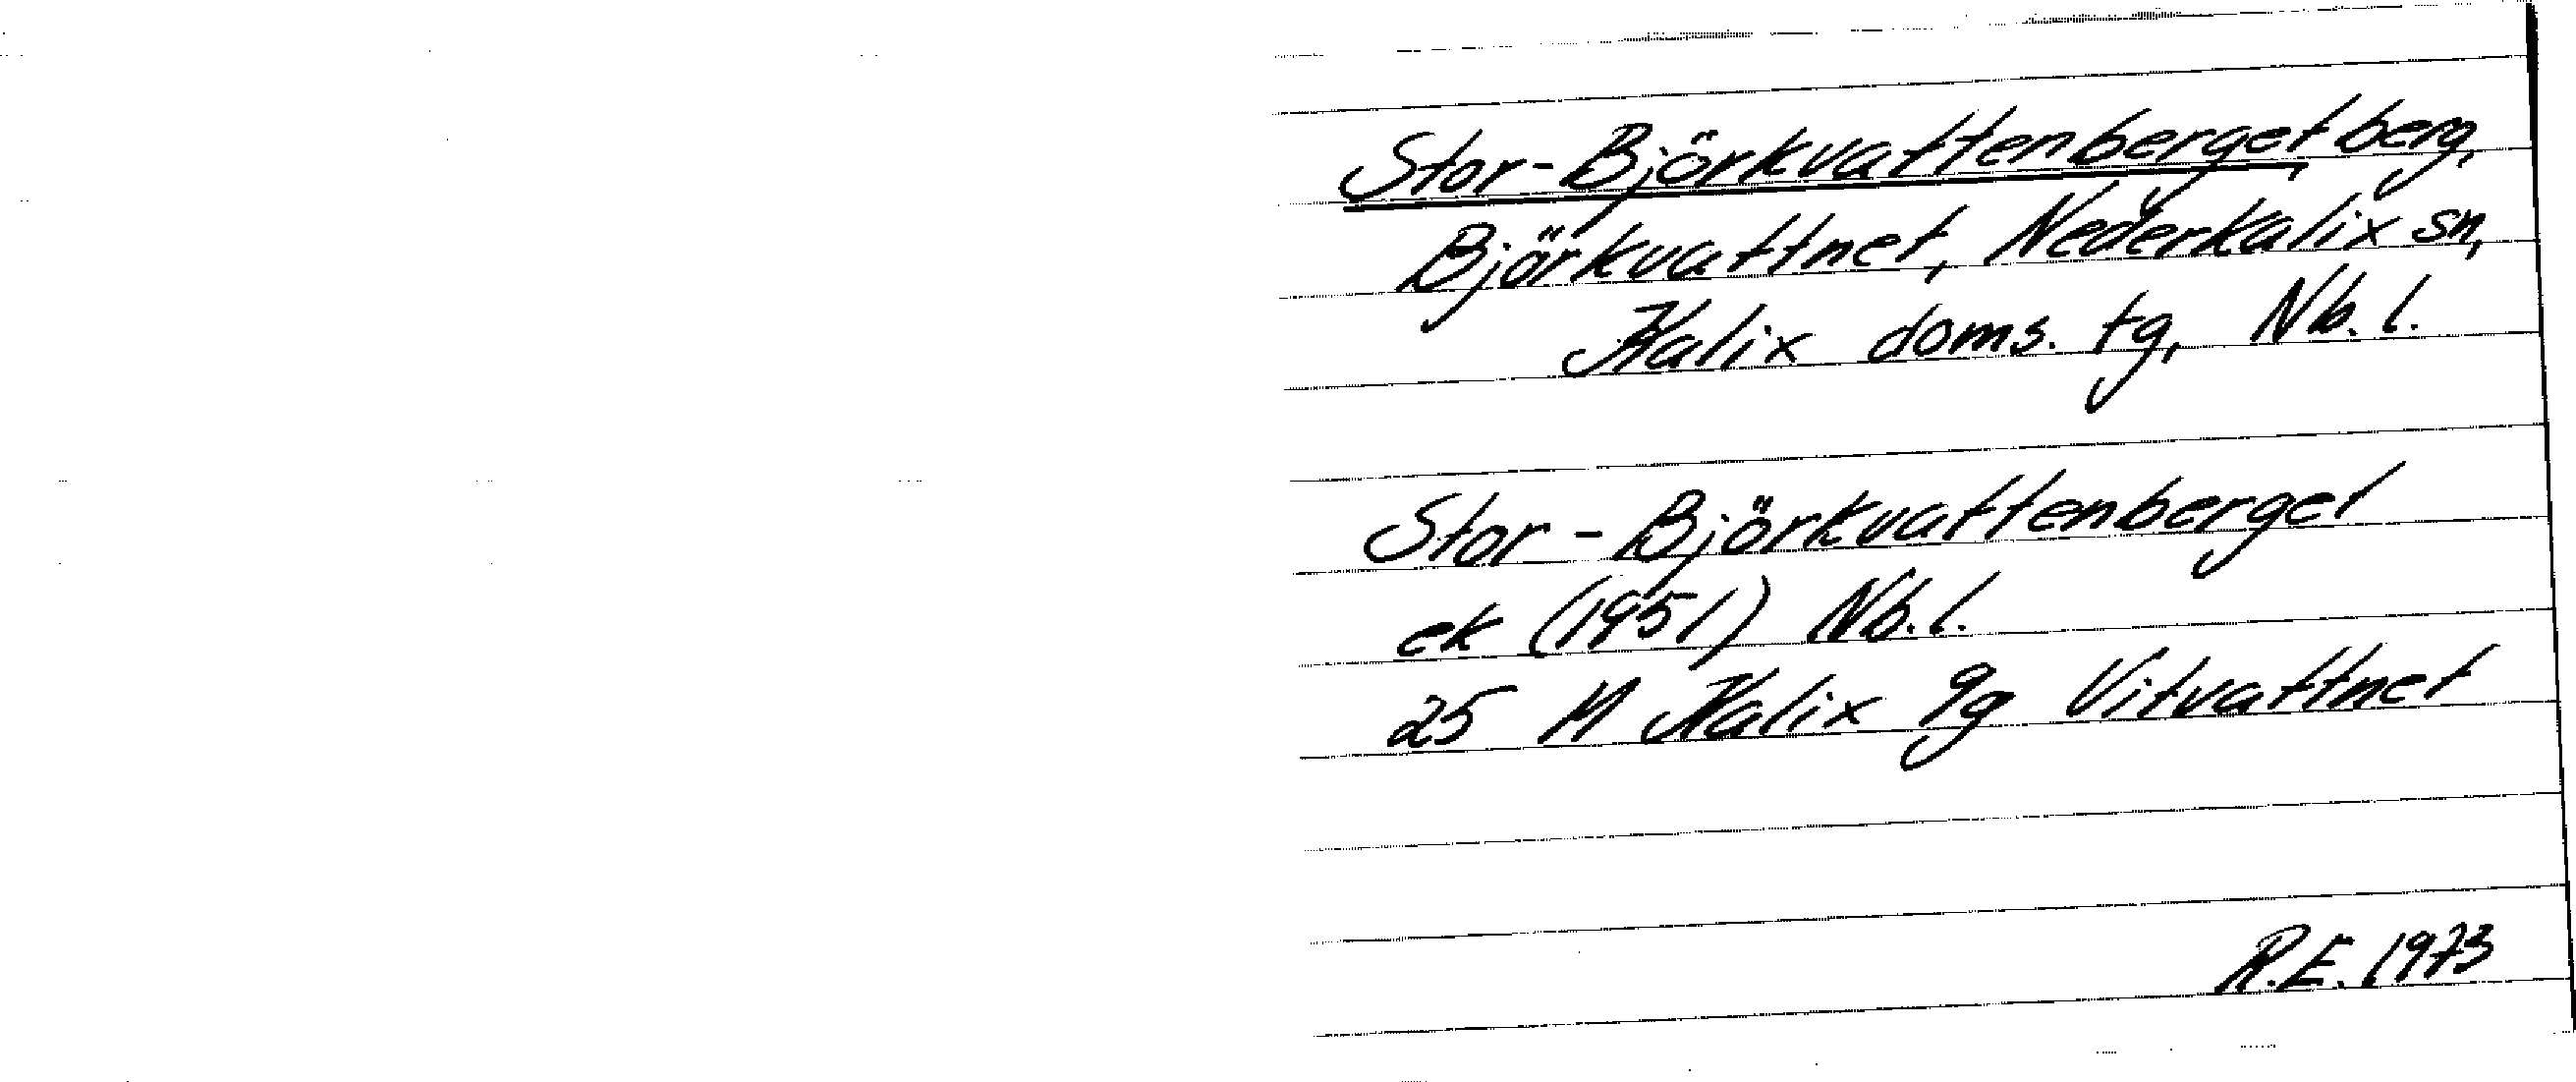 Stor-Björkvattenberget berg,
Björkvattnet, Nederkalix sn,
Kalix doms. tg, Nb. l.
Stor-Björkvattenberget
ek (1951) Nb. l.
25 M Kalix 9g Vitvattnet
R.E. 1973